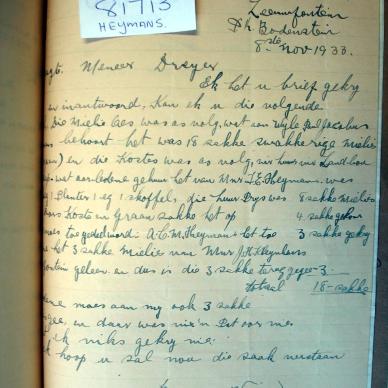 81713
HEYMANS.
Zeeuwfontein
Pk. Bodenstein
8ste Nov 1933.
Meneer Dreyer
Ek het u brief gekry
en in antwoord, kan ek u die volgende
Die Mielie oes was as volg, wat aan wyle Paul Jacobus
behoort het was 18 sakke swakke rige mielies
en die Kostes was as volg, vir huur vir Landbou
wat oorledene gehuur het van Mnr J.E. Heymans was
1 Planter 1 eg 1 skoffel, die huur Prys was 8 sakke Mielies
Koste en Graan sakke het op 4 sakke gekom
moes toe gedeel word A.C.M. Heymans het toe 3 sakke gekry
het 3 sakke Mielies van Mnr J.H.
fontein geleen en dus is die 3 sakke terug gegee - 3
totaal 18 - sakke
moes aan my ook 3 sakke
gee, en daar was nie'n Pit vor my
ek niks gekry nie.
hoop u sal nou die saak verstaan